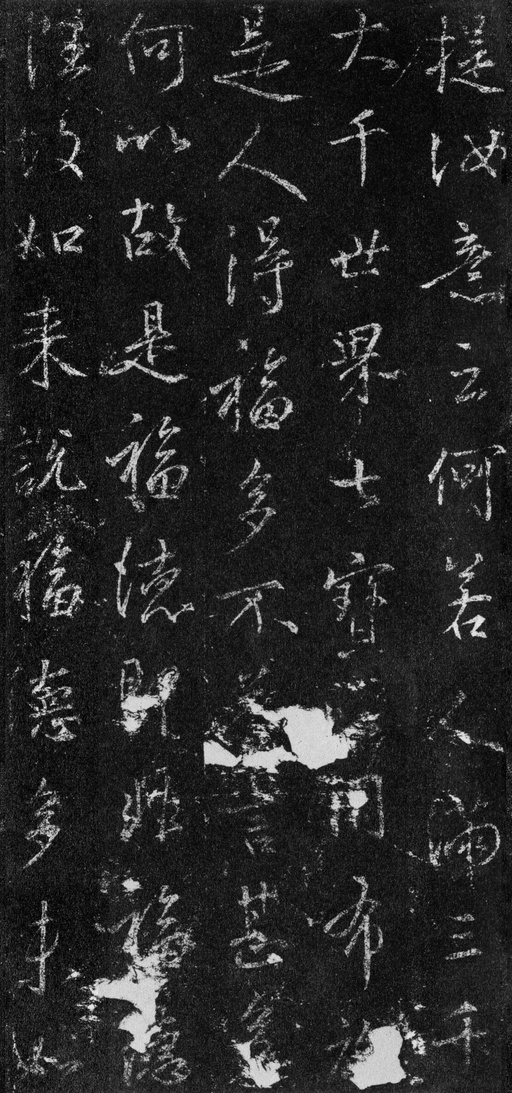 提汝意云何若人滿三千
大千世界七寶用布
是人得福多不言甚
何以故是福德即非福德
故如來說福德多